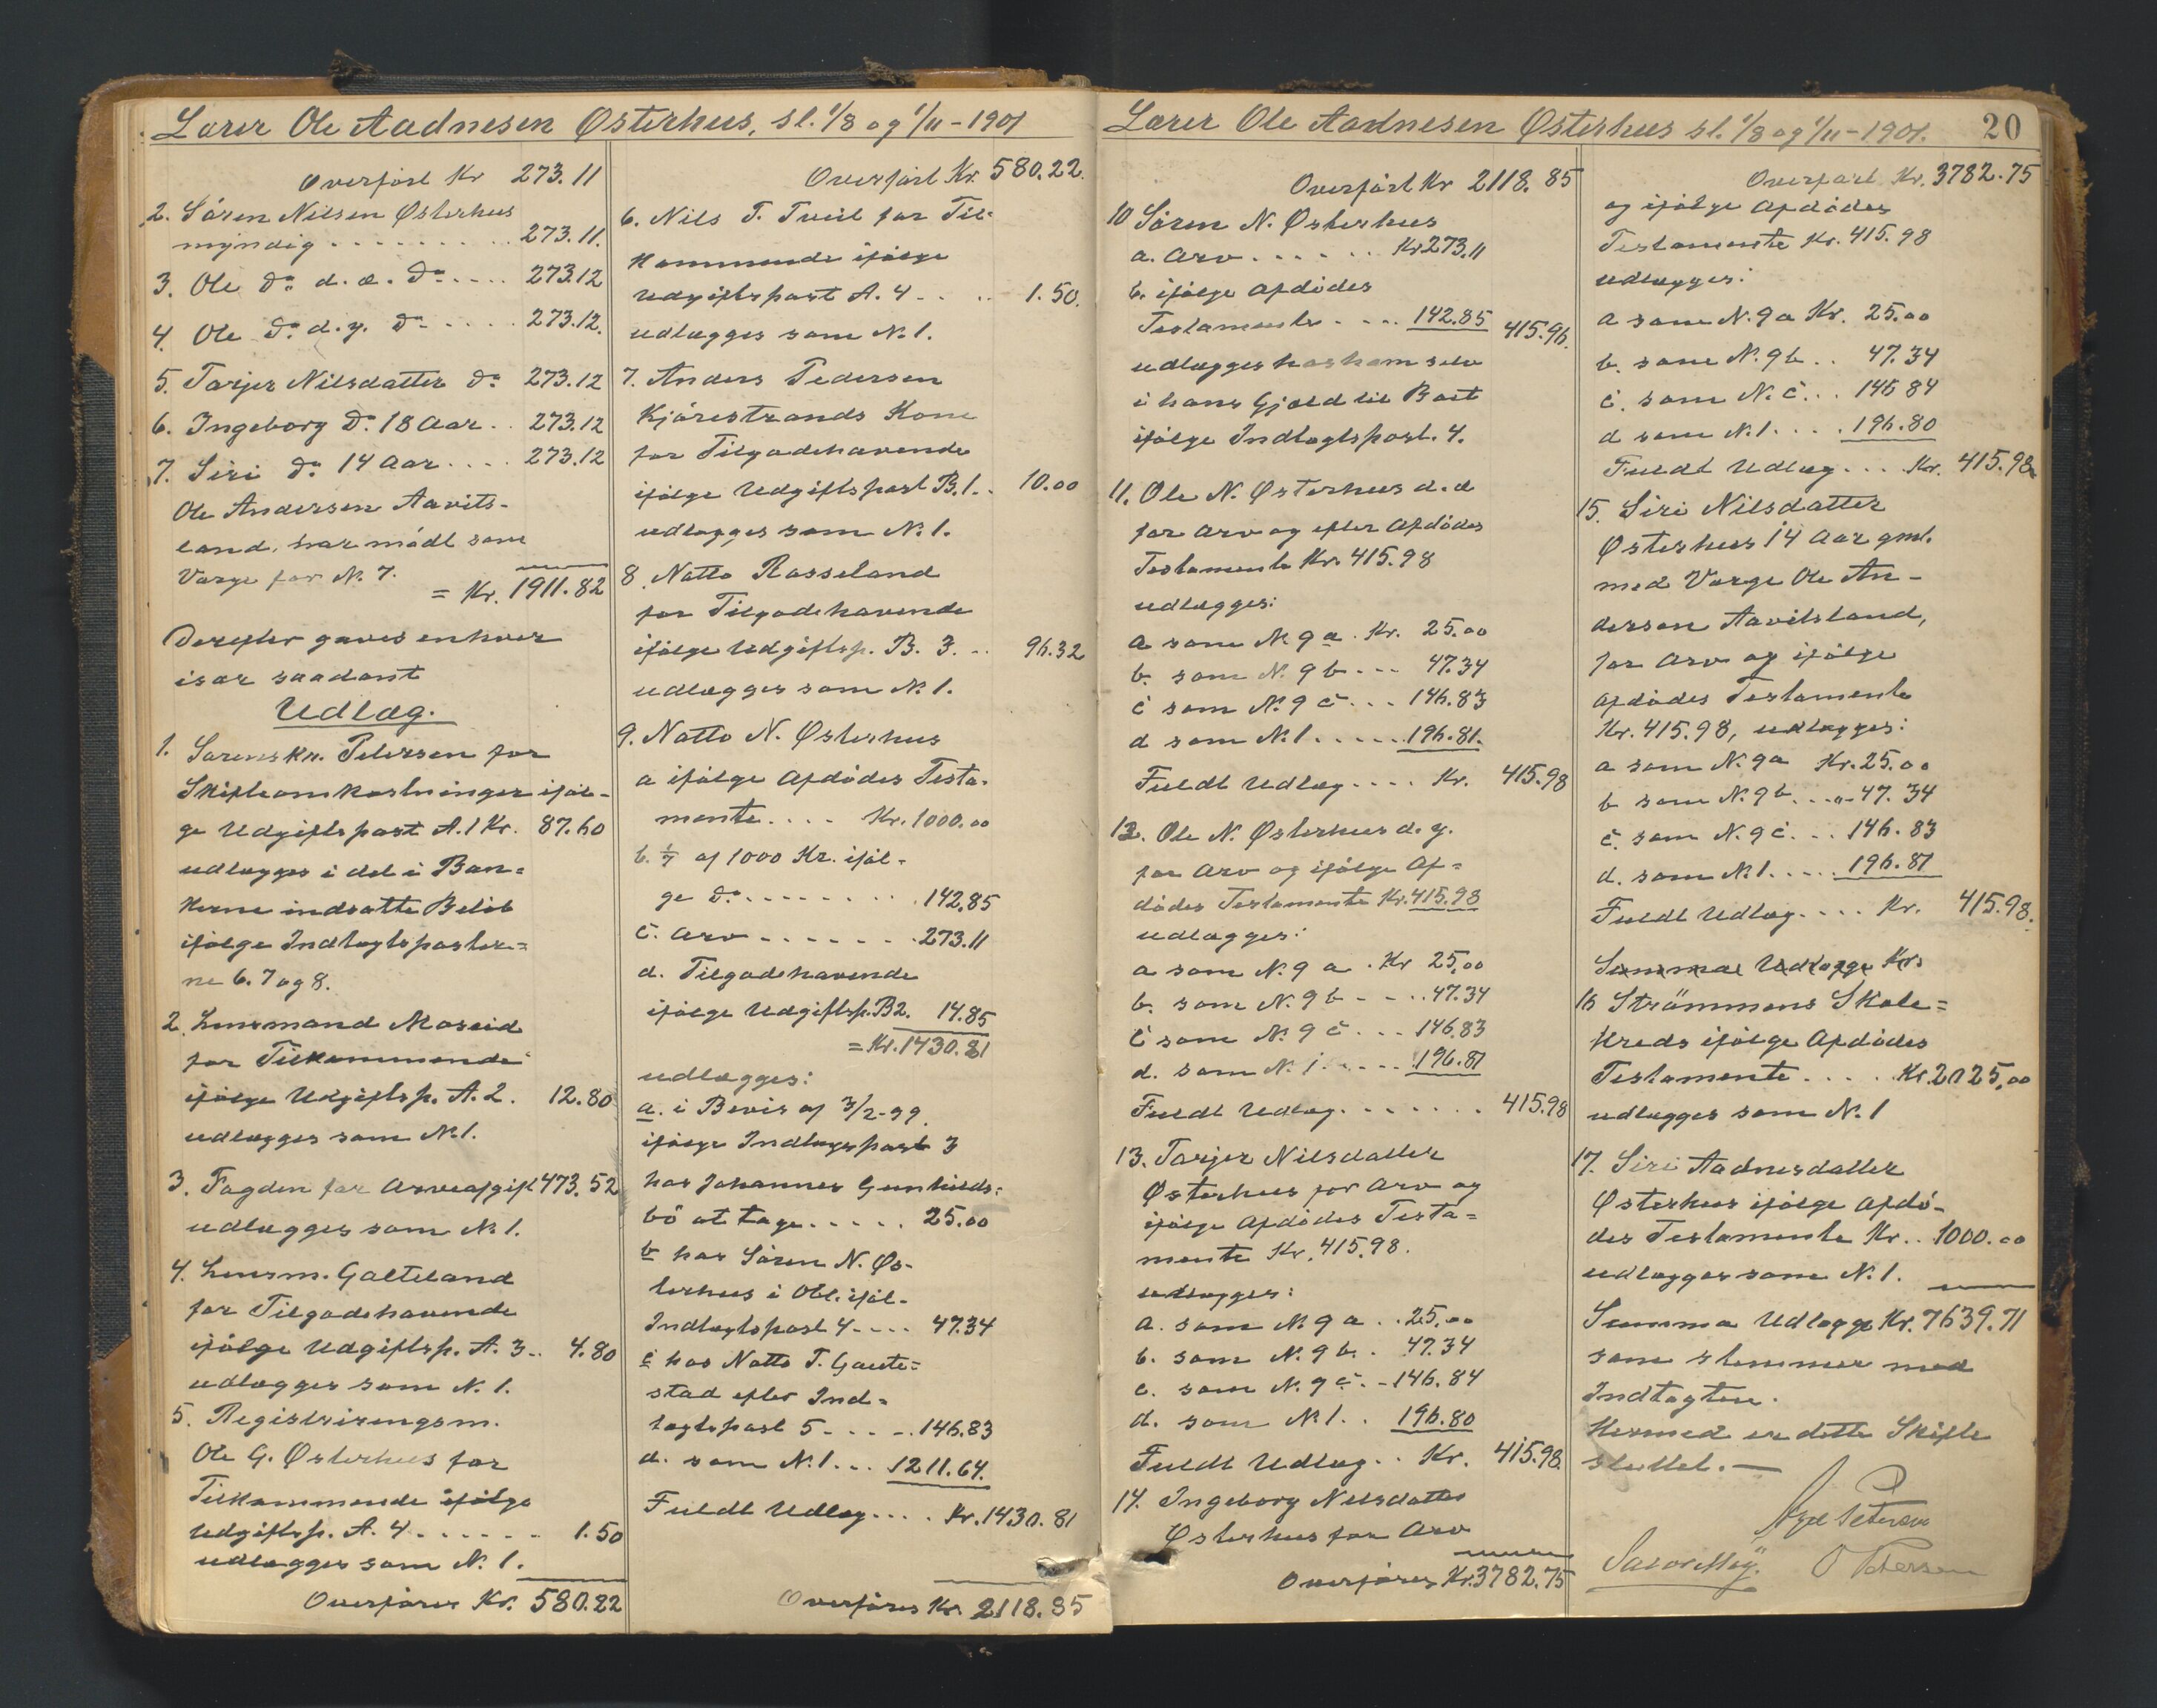 Lærer Ole Aadnesen Østerhus, sl. 1/8 og 1/11 - 1901
Overført Kr 273.11
2. Sören Nilsen Østerhus
myndig . . . . . . . . . 273.11.
3. Ole Do d.æ. Do . . . . 273.12
4. Ole Do d.y. Do . . . . . 273.12.
5. Tarjer Nilsdatter Do 273.12
6. Ingeborg Do 18 Aar . . 273.12
7. Siri Do 14 Aar . . . . 273.12
Ole Andersen Aavits-
land, har mödt som
Værge for N. 7.
= Kr. 1911.82
Derefter gaves enhver
især saadant
Udlæg.
1. Sorenskr. Petersen for
Skifteomkostninger iföl-
ge Udgiftspost A.1 Kr. 87.60
udlægges i det i Ban-
kerne indsatte Belöb
ifölge Indtægtsposter=
ne 6. 7 og 8.
2. Lensmand Moseid
for Tilkommende
ifölge Udgiftsp. A. 2. 12.80
udlægges som N. 1.
3. Fogden for Arveafgift 473.52
udlægges som N. 1.
4. Lensm. Galteland
for Tilgodehavende
ifölge Udgiftsp. A. 3 . . 4.80
udlægges som N. 1.
5. Registreringsm.
Ole G. Østerhus for
Tilkommende ifölge
Udgiftsp. A. 4 . . . . . . 1.50
udlægges som N. 1.
Overføres Kr. 580.22
Overført Kr. 580.22.
6. Nils T. Tveit for Til-
kommende ifölge
Udgiftspost A. 4 . . . . 1.50.
udlægges som N. 1.
7. Anders Pedersen
Kjörestrands Kone
for Tilgodehavende
ifölge Udgiftspost B. 1. . 10.00
udlægges som N. 1.
8. Natto Rosseland
for Tilgodehavende
ifölge Udgiftsp. B. 3. . . 96.32
udlægges som N. 1.
9. Natto N. Østerhus
a ifölge Afdödes Testa-
mente . . . . Kr. 1000.00
b. 1/7 af 1000 Kr. iföl-
ge Do . . . . . . . . 142.85
c. Arv . . . . . . . 273.11
d. Tilgodehavende
ifölge Udgiftsp. B2. 14.85
= Kr. 1430.81
udlægges:
a. i Bevis af 3/2-99.
ifölge Indtægspost 3
hos Johannes Gunhilds-
bö at tage . . . . . 25.00
b hos Sören N. Øs-
terhus i Obl. iföl.
Indtægtspost 4 . . . . 47.34
c hos Natto T. Gaute=
stad efter Ind=
tægtspost 5 . . . . . 146.83
d. som N. 1 . . . 1211.64.
Fuldt Udlæg . . . . Kr. 1430.81
Overføres Kr. 2118.85
Lærer Ole Aadnesen Østerhus sl. 1/8 og 1/11 - 1901. 20
Overført Kr 2118.85
10 Sören N. Østerhus
a. Arv . . . . . . Kr 273.11
b. ifölge Afdödes
Testamente . . . . 142.85 415.96.
udlægges hos ham selv
i hans Gjæld til Boet
ifölge Indtægtspost. 4.
11. Ole N. Østerhus d.æ
for Arv og efter Afdödes
Testamente Kr. 415.98
udlægges:
a som N. 9 a . Kr. 25.00
b. som N. 9 b . . . 47.34
c som N. 9 c . . . 146.83
d som N. 1 . . . . . 196.81.
Fuldt Udlæg . . . . Kr. 415.98
12. Ole N. Østerhus d.y.
for Arv og ifölge Af=
dödes Testamente Kr. 415.98
udlægges:
a som N. 9 a . Kr 25.00
b. som N. 9 b . . . . 47.34
c som N. 9 c . . . 146.83
d. som N. 1 . . . . . 196.81
Fuldt Udlæg . . . . . . . 415.98
13. Tarjer Nilsdatter
Østerhus for Arv og
ifölge Afdödes Testa=
mente Kr. 415.98.
udlægges:
a. som N. 9 a . . 25.00
b. som N. 9 b. . 47.34
c. som N. 9 c. - 146.84
d. som N. 1 . . 196.80
Fuldt Udlæg . . Kr. 415.98.
14. Ingeborg Nilsdatter
Østerhus for Arv
Overføres Kr. 3782.75
Overført Kr. 3782.75
og ifölge Afdödes
Testamente Kr. 415.98
udlægges:
a som N. 9 a Kr. 25.00
b. som N. 9 b . . 47.34
c. som N. c . . . 146 84
d som N. 1 . . . . 196.80
Fuldt Udlæg . . . Kr. 415.98
15. Siri Nilsdatter
Østerhus 14 Aar gml.
med Værge Ole An-
dersen Aavitsland,
for Arv og ifölge
Afdödes Testamente
Kr. 415.98, udlægges:
a som N. 9 a Kr. 25.00
b som N. 9 b . . . „ 47.34
c. som N. 9 c . . . 146.83
d. som N. 1 . . . . . 196.81
Fuldt Udlæg . . . . Kr. 415.98.
Summa Udlægge Kr.
16 Strömmens Skole=
kreds ifölge Afdödes
Testamente . . . . Kr. 2025.00
udlægges som N. 1
17. Siri Aadnesdatter
Østerhus ifölge Afdö-
des Testamente Kr. . 1000.00
udlægges som N. 1.
Summa Udlægge Kr. 7639.71
som stemmer med
Indtægten.
Hermed er dette Skifte
sluttet. —
Petersen
O Petersen